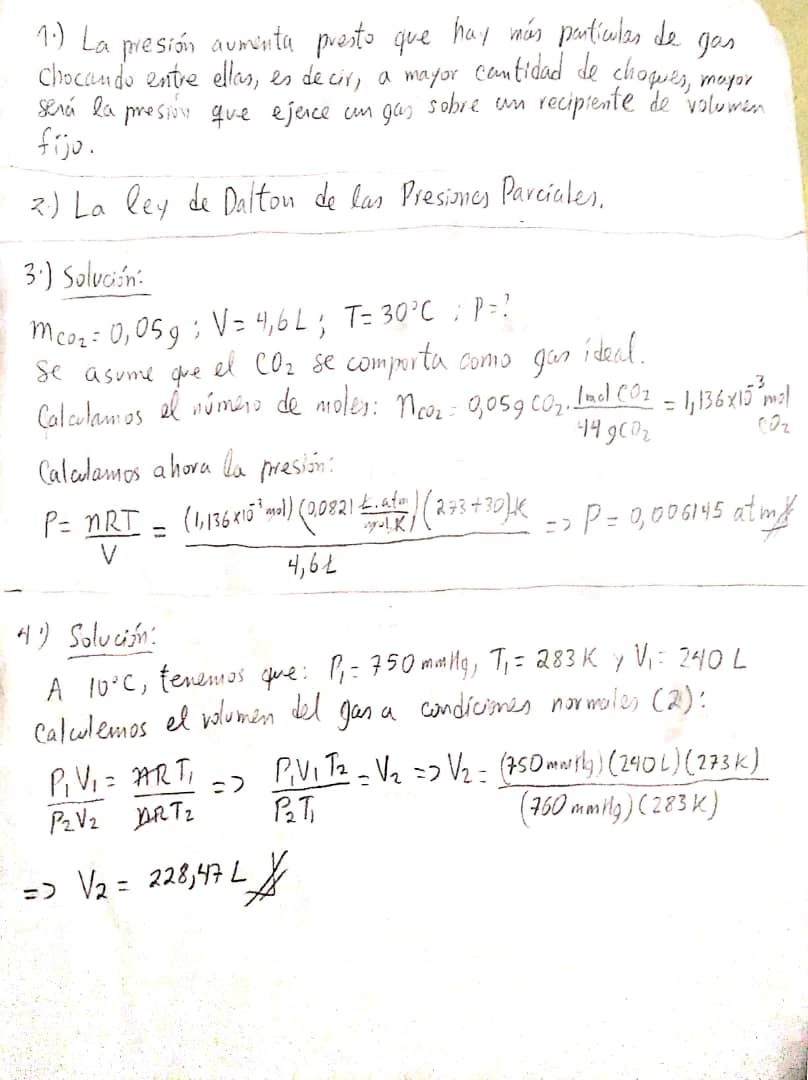 1.) La presión aumenta puesto que hay más partículas de gas
chocando entre ellas, es decir, a mayor cantidad de choques, mayor
será la presión que ejerce un gas sobre un recipiente de volumen
fijo.
2.) La ley de Dalton de las Presiones Parciales.
3.) Solución:
mCO2 = 0,05g ; V = 4,6L ; T = 30°C ; P = ?
Se asume que el CO2 se comporta como gas ideal.
Calculamos el número de moles: nCO2 = 0,05g CO2 . 1mol CO2 / 44 gCO2 = 1,136x10^-3 mol CO2
Calculamos ahora la presión:
P = nRT / V = (1,136x10^-3 mol)(0,0821 L.atm / mol.K)(273+30)K / 4,6L => P = 0,006145 atm
4.) Solución:
A 10°C, tenemos que: P1 = 750 mmHg, T1 = 283 K y V1 = 240 L
Calculemos el volumen del gas a condiciones normales (2):
P1V1 / P2V2 = nRT1 / nRT2 => P1V1T2 / P2T1 = V2 => V2 = (750mmHg)(240L)(273K) / (760mmHg)(283K)
=> V2 = 228,47 L